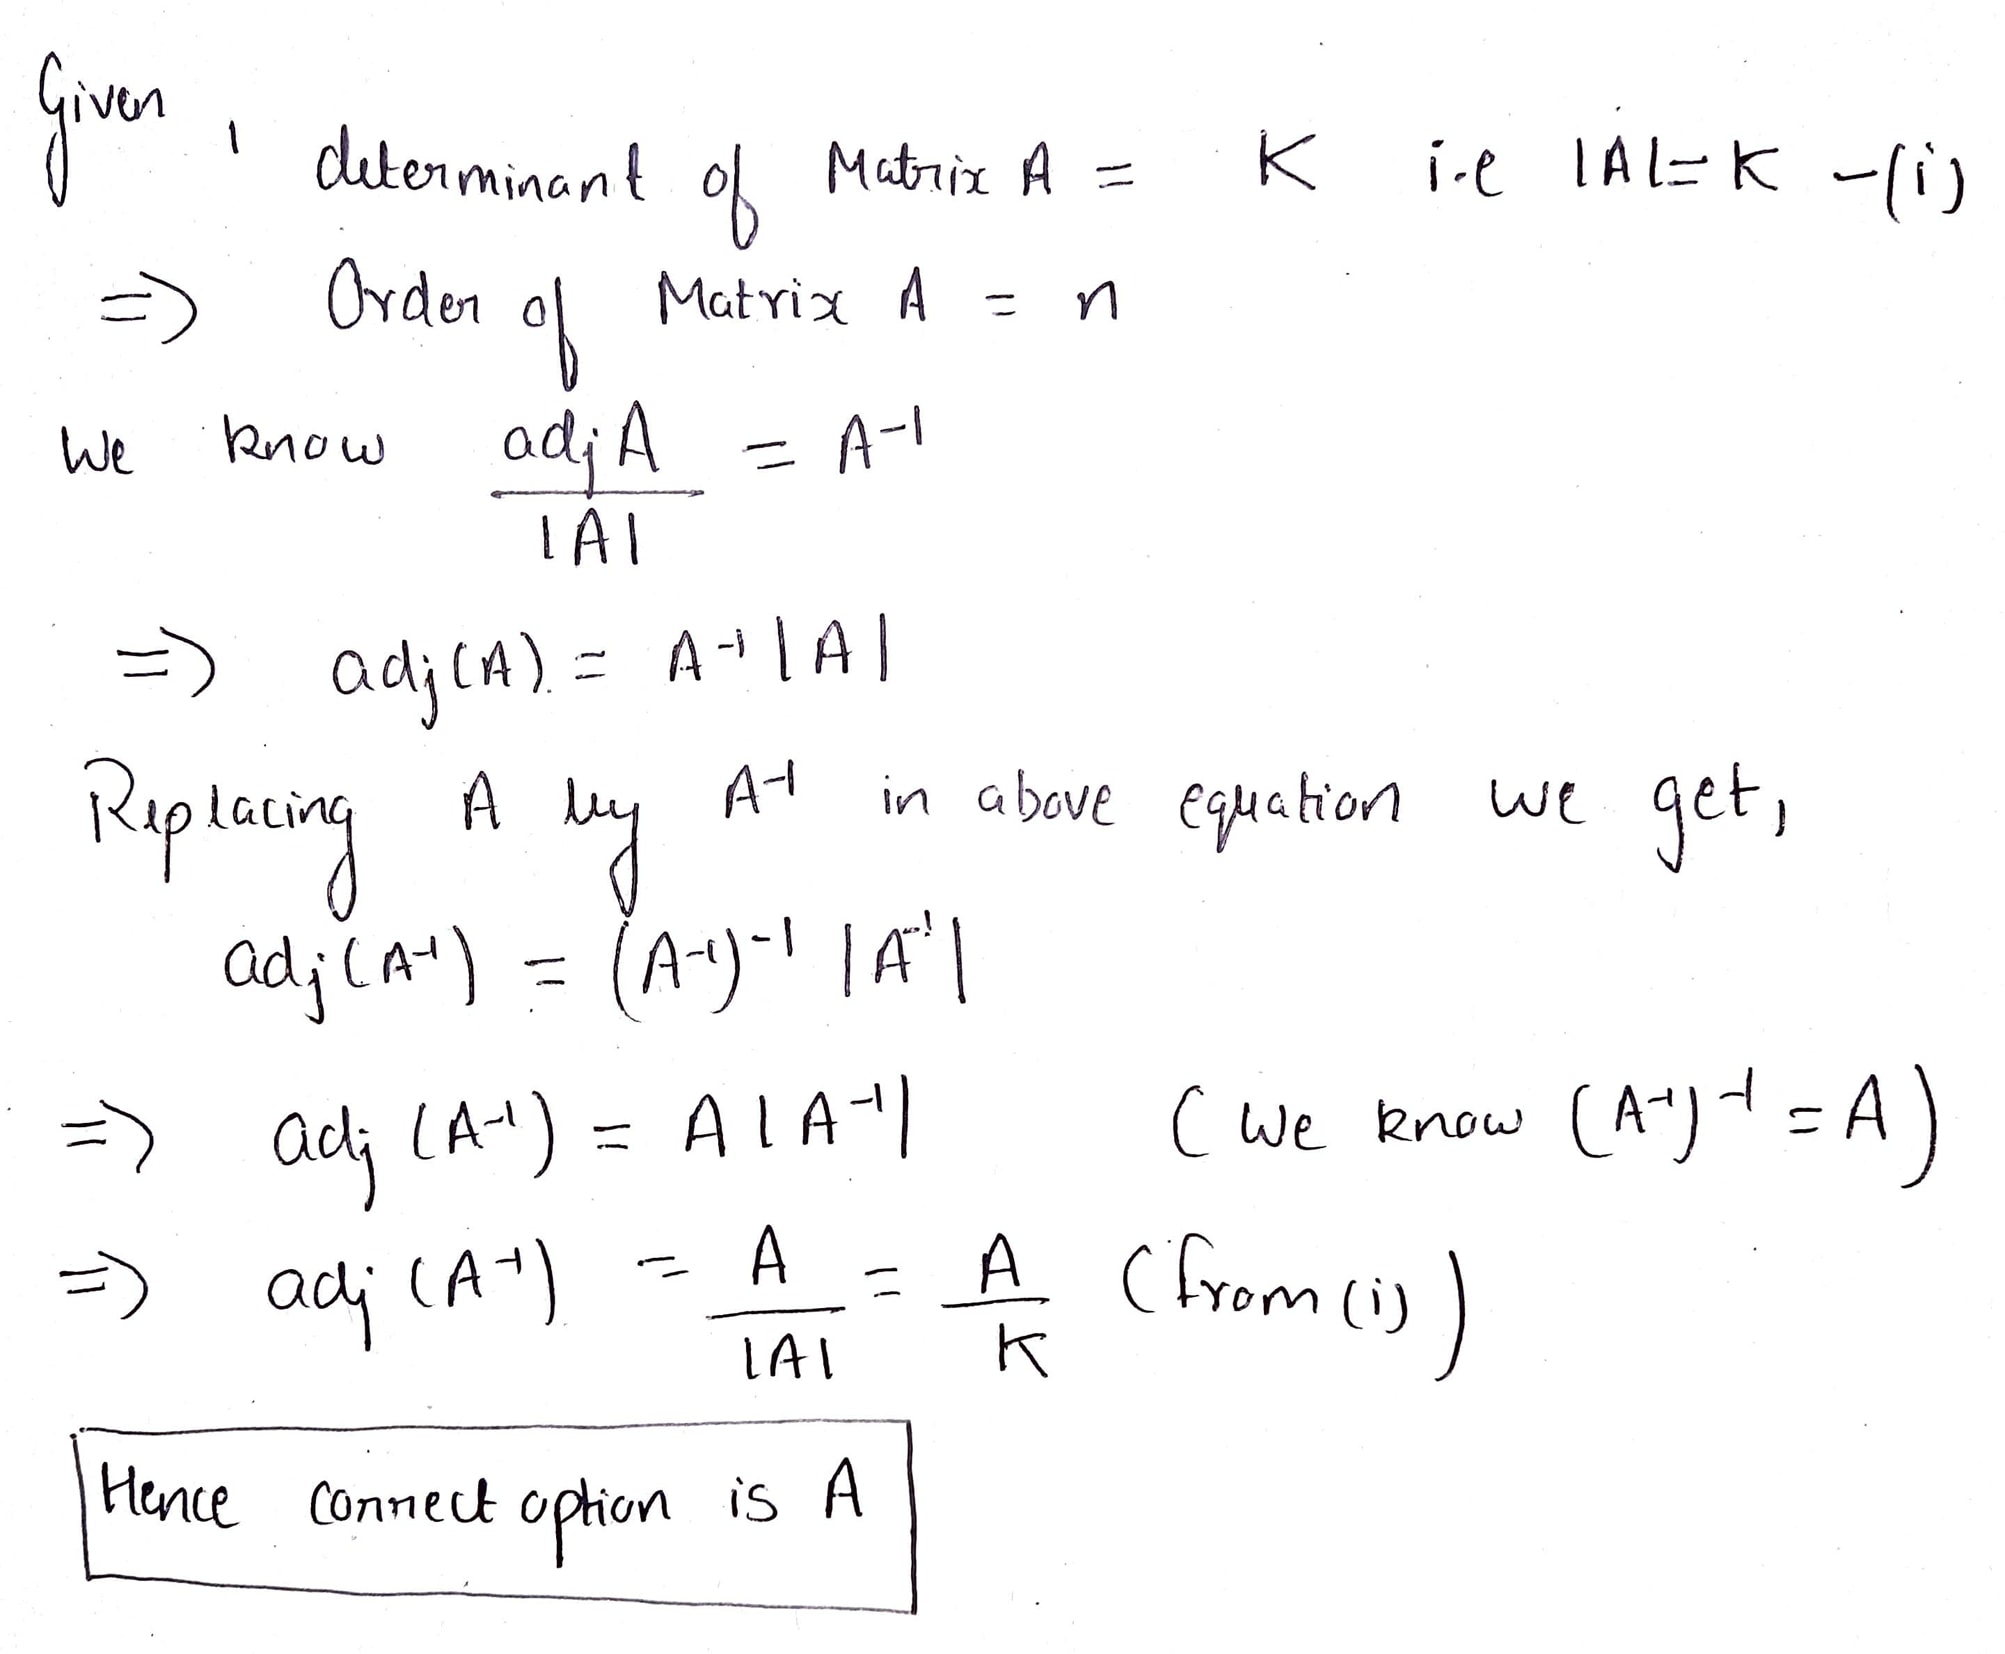 Given, determinant of Matrix A = K i.e |A| = K -(i)
=> Order of Matrix A = n
We know adj A / |A| = A⁻¹
=> adj(A) = A⁻¹ |A|
Replacing A by A⁻¹ in above equation we get,
adj(A⁻¹) = (A⁻¹)⁻¹ |A⁻¹|
=> adj (A⁻¹) = A |A⁻¹| (We know (A⁻¹)⁻¹ = A)
=> adj (A⁻¹) = A / |A| = A / K (from (i))
Hence correct option is A